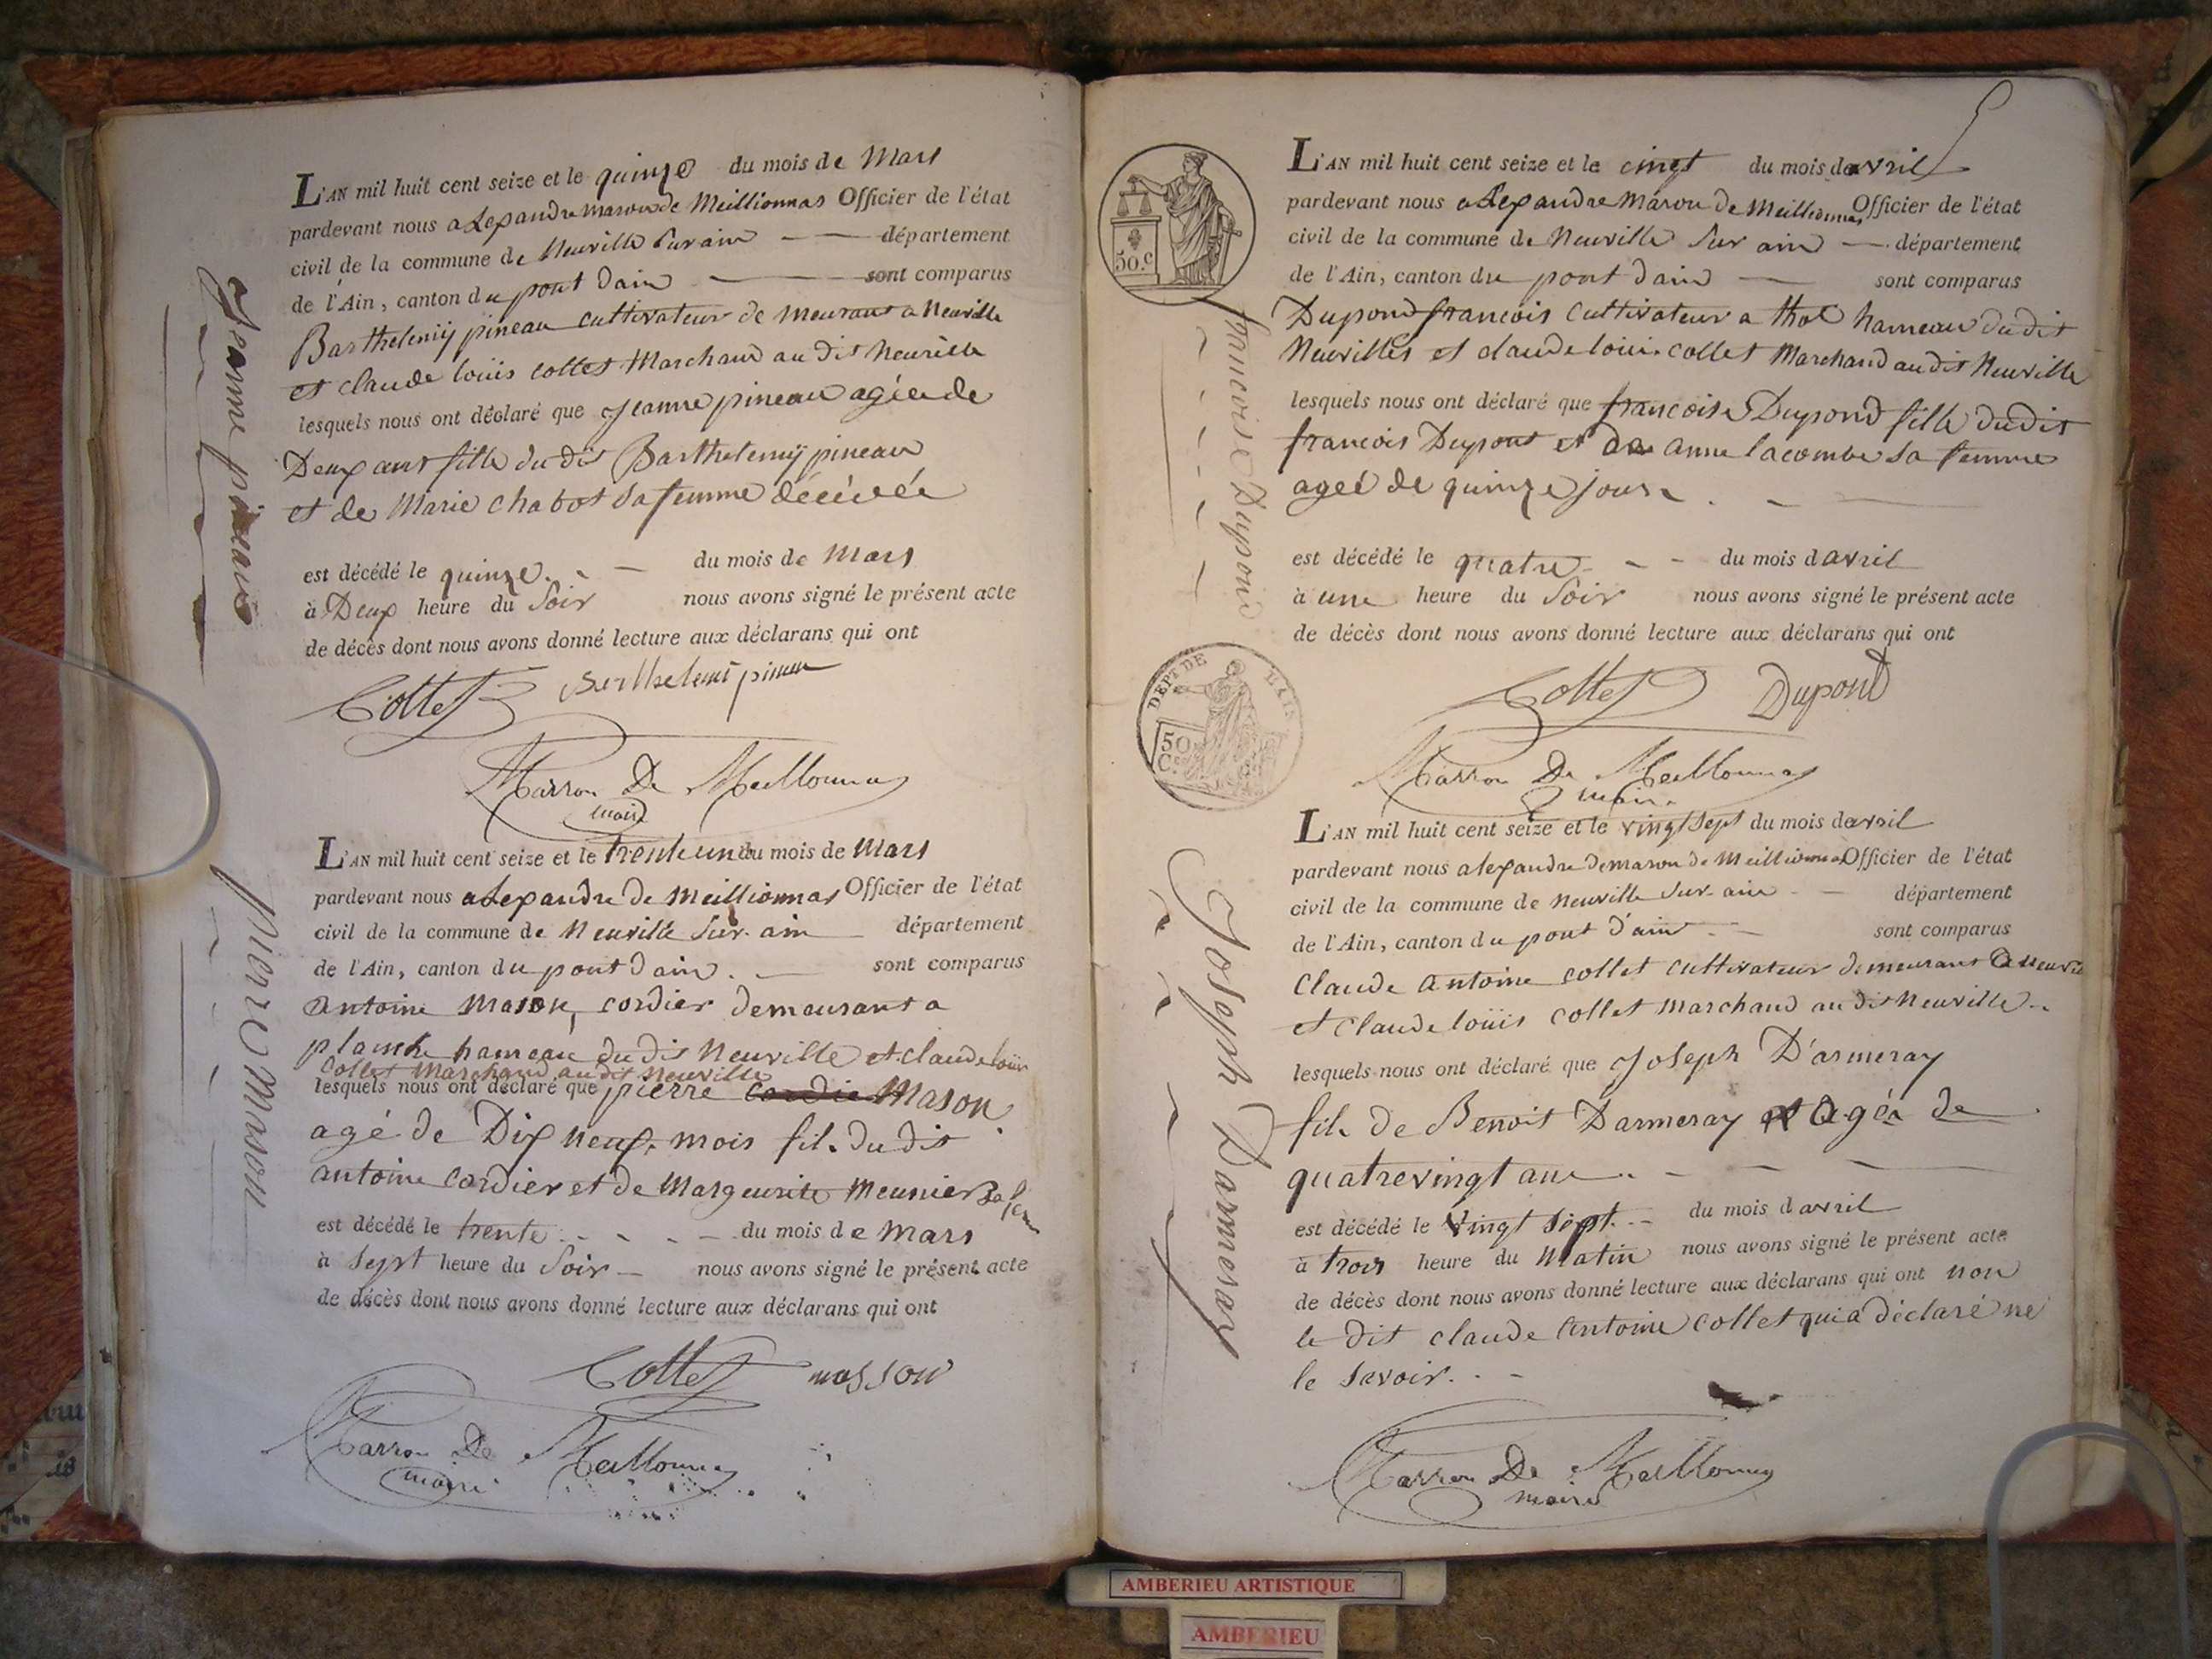 Jeanne pineau
L'AN mil huit cent seize et le quinze du mois de Mars
pardevant nous alexandre maron de Meillionnas Officier de l'état
civil de la commune de Neuville sur ain département
de l'Ain, canton du pont dain sont comparus
Barthelemÿ pineau cultivateur de meurant a Neuville
et claude loüis collet Marchand au dit Neuville
lesquels nous ont déclaré que Jeanne pineau agée de
Deux ans fille du dit Barthelemÿ pineau
et de Marie chabot sa femme décédée
est décédé le quinze du mois de Mars
à Deux heure du Soir nous avons signé le présent acte
de décès dont nous avons donné lecture aux déclarans qui ont
Collet Berthelemi pineau
Marron De Meillonnas
maire
pierre Mason
L'AN mil huit cent seize et le trente un du mois de Mars
pardevant nous alexandre de Meillionnas Officier de l'état
civil de la commune de Neuville Sur-ain département
de l'Ain, canton du pont dain. sont comparus
antoine Mason, cordier demeurant a
planche hameau du dit Neuville et claude loüis
collet Marchand au dit Neuville
lesquels nous ont déclaré que pierre cordie Mason
agé de Dix neuf mois fils du dit
antoine cordier et de Marguerite Meunier Sa fem
est décédé le trente du mois de Mars
à Sept heure du Soir nous avons signé le présent acte
de décès dont nous avons donné lecture aux déclarans qui ont
Collet masson
Marron De Meillonnas
maire
50.c
francoise Dupond
L'AN mil huit cent seize et le cingt du mois davril
pardevant nous alexandre Maron de Meillionnas Officier de l'état
civil de la commune de Neuville Sur ain département
de l'Ain, canton du pont dain sont comparus
Dupond francois cultivateur a thol hameau du dit
Neuvilles et claude louis collet Marchand au dit Neuville
lesquels nous ont déclaré que francoise Dupond fille du dit
francois Dupont et de anne lacombe sa femme
ageé de quinze jours
est décédé le quatre du mois davril
à une heure du Soir nous avons signé le présent acte
de décès dont nous avons donné lecture aux déclarans qui ont
Collet Dupond
DEPT DE L'AIN
50 Cs
Marron De Meillonnas
maire
Joseph Darmeray
L'AN mil huit cent seize et le vingt sept du mois davril
pardevant nous alexandre demaron de Meillionnas Officier de l'état
civil de la commune de Neuville Sur-ain département
de l'Ain, canton du pont d'ain sont comparus
Claude antoine collet cultivateur demeurant a Neuville
et claude loüis collet Marchand au dit Neuville
lesquels nous ont déclaré que Joseph D'armeray
fils de Benoit Darmeray et agée de
quatrevingt ans
est décédé le vingt sept du mois davril
à trois heure du Matin nous avons signé le présent acte
de décès dont nous avons donné lecture aux déclarans qui ont non
le dit claude antoine collet qui a déclaré ne
le savoir.
Marron De Meillonnas
maire
AMBERIEU ARTISTIQUE
AMBERIEU